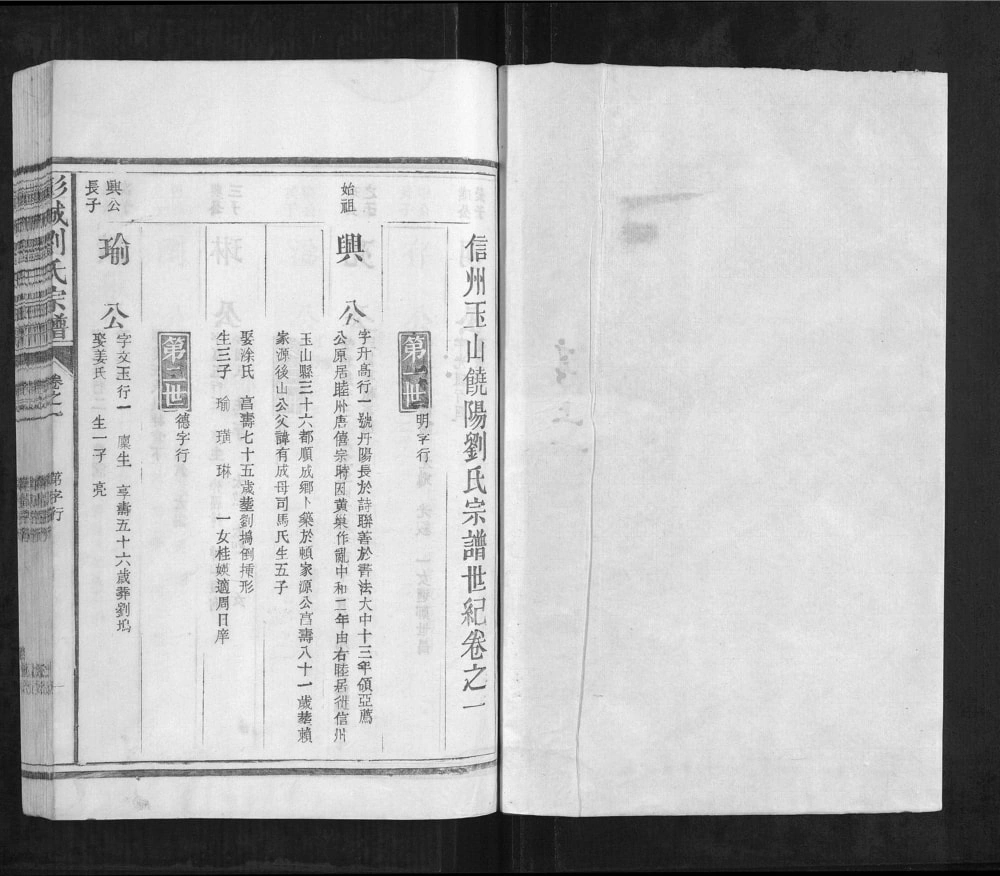 信州玉山饒陽劉氏宗譜世紀卷之一
第一世 明字行
始祖
興公
字升高行一號丹陽長於詩聯善於書法大中十三年領亞薦
公原居睦州唐僖宗時因黃巢作亂中和二年由右睦居徙信州
玉山縣三十六都順成鄉卜築於頓家源公亯壽八十一歲塟賴
家源後山公父諱有成母司馬氏生五子
娶涂氏 亯壽七十五歲塟劉塢倒揷形
生三子 瑜 璜 琳 一女桂媖適周日庠
第二世 德字行
興公
長子
瑜公
字文玉行一 廩生 享壽五十六歲葬劉塢
娶姜氏 生一子 亮
彭城劉氏宗譜 卷之一 第字行